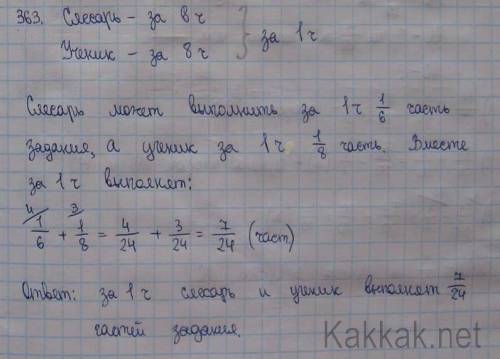 363. Слесарь – за 6 ч } за 1 ч
Ученик – за 8 ч
Слесарь может выполнить за 1ч 1/6 часть
задания, а ученик за 1ч 1/8 часть. Вместе
за 1 ч выполнят:
4/ 3/
1/6 + 1/8 = 4/24 + 3/24 = 7/24 (част)
Ответ: за 1 ч слесарь и ученик выполнят 7/24
частей задания.
Kakkak.net